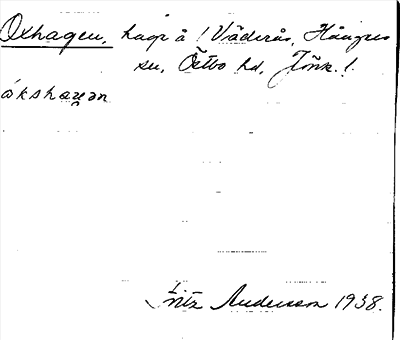 Oxhagen, hage å Väderås, Hångers
sn, Östbo hd, Jönk. l.
ókshagan
Fritz Andersson 1938.